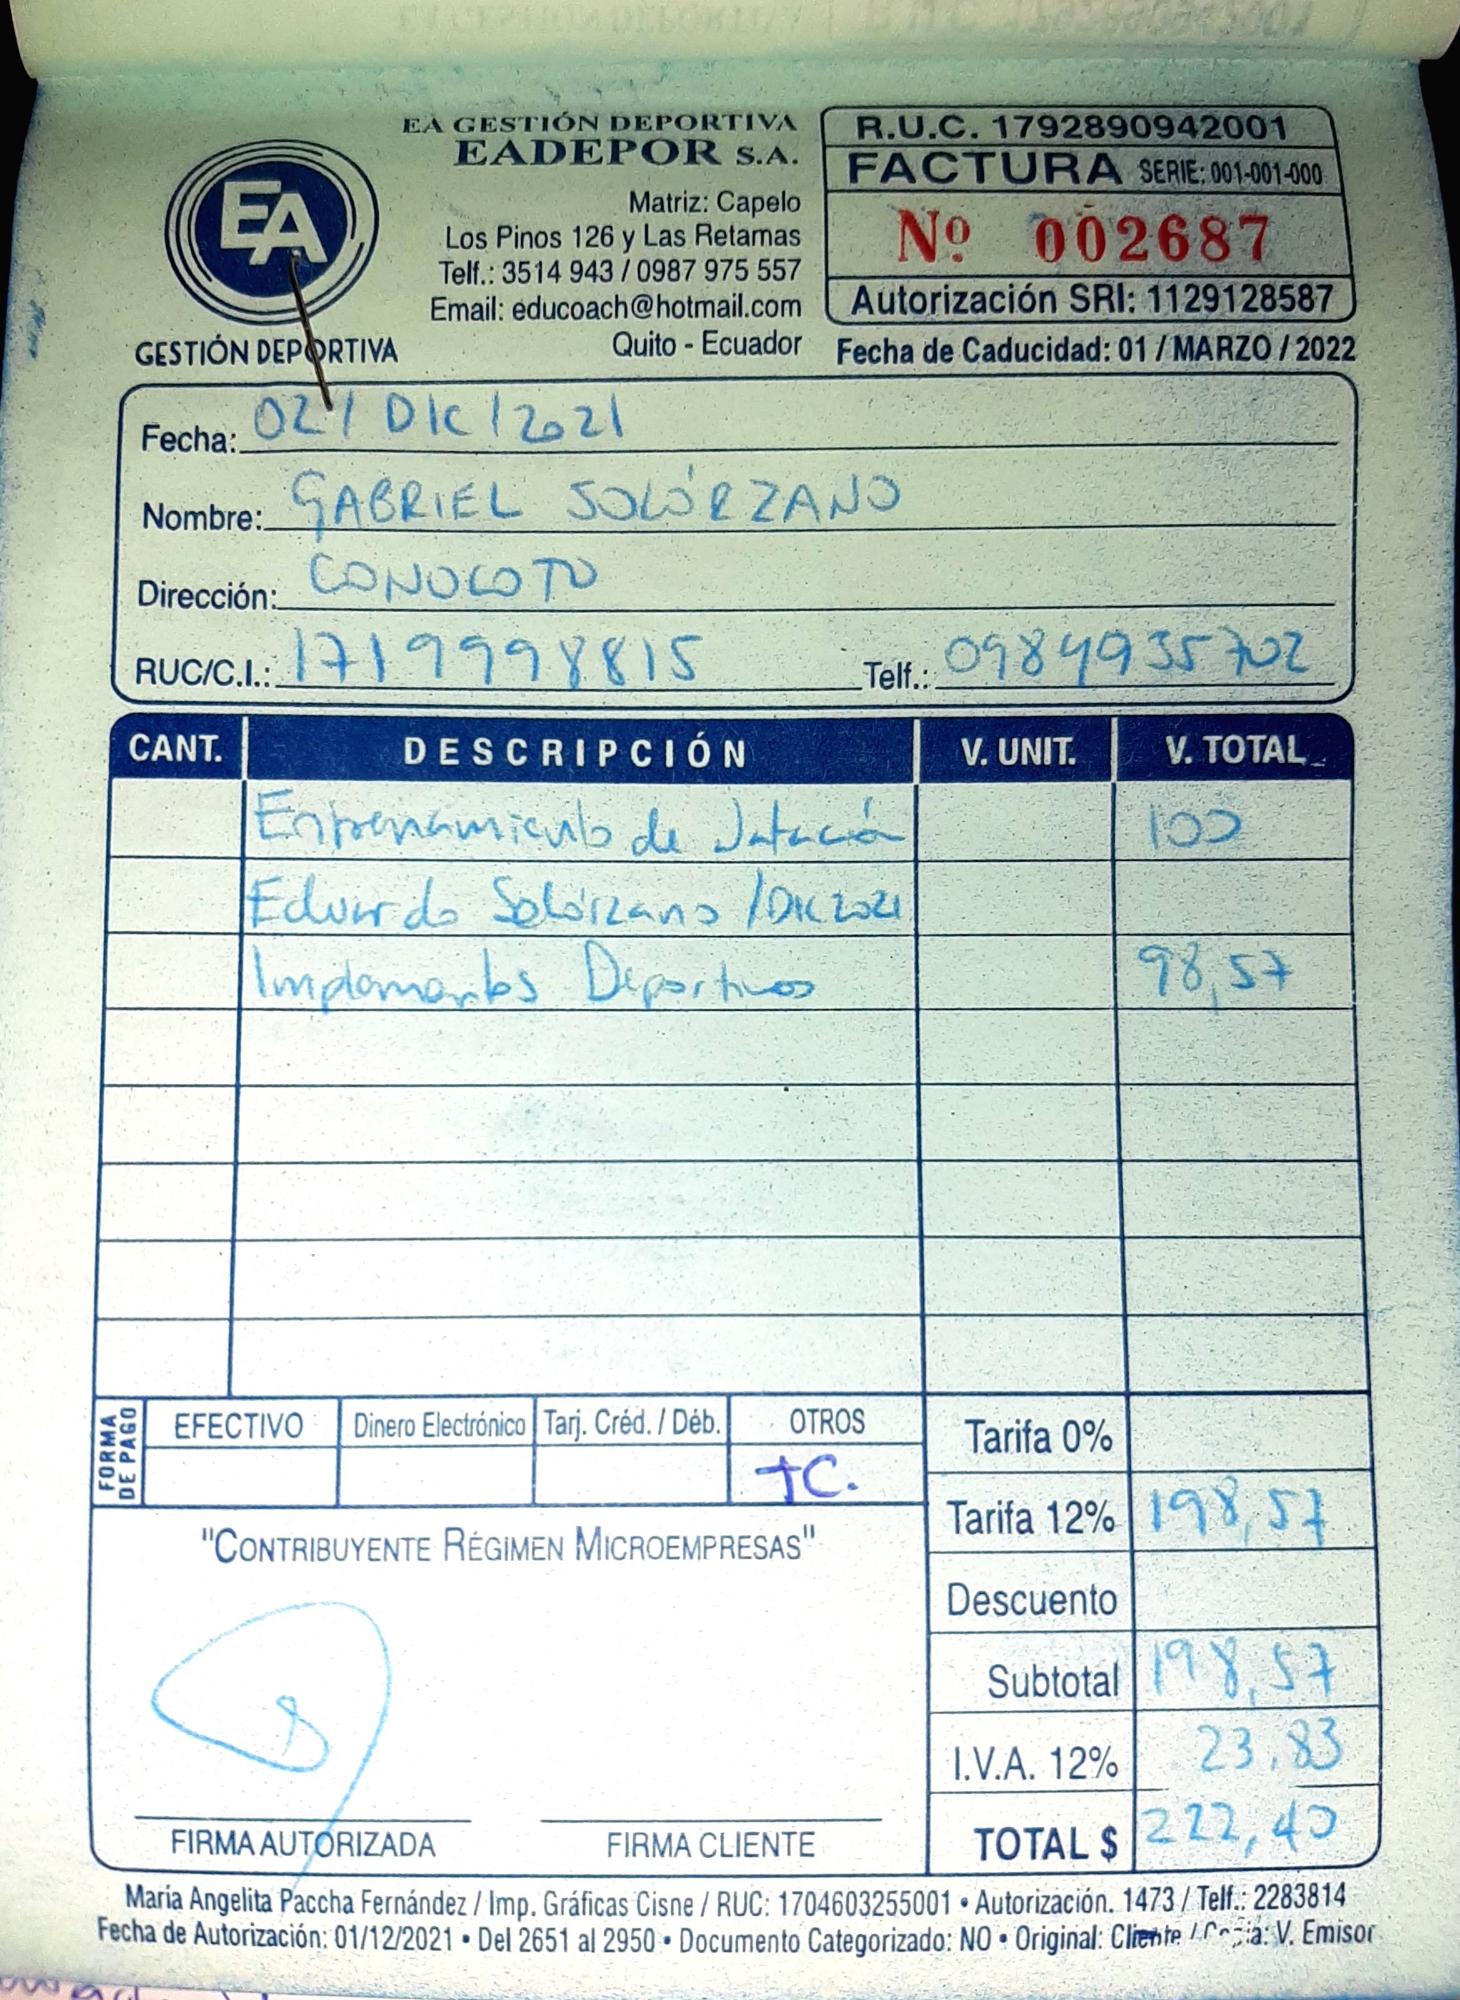 EA GESTIÓN DEPORTIVA
EADEPOR S.A.
EA
GESTIÓN DEPORTIVA
Matriz: Capelo
Los Pinos 126 y Las Retamas
Telf.: 3514 943 / 0987 975 557
Email: educoach@hotmail.com
Quito - Ecuador
R.U.C. 1792890942001
FACTURA SERIE: 001-001-000
Nº 002687
Autorización SRI: 1129128587
Fecha de Caducidad: 01 / MARZO / 2022
Fecha: 02 / DIC / 2021
Nombre: GABRIEL SOLÓRZANO
Dirección: CONOCOTO
RUC/C.I.: 1719998815 Telf.: 0984935702
CANT. DESCRIPCIÓN V. UNIT. V. TOTAL
Entrenamiento de Natación 100
Eduardo Solórzano / DIC 2021
Implementos Deportivos 98,57
FORMA DE PAGO
EFECTIVO Dinero Electrónico Tarj. Créd. / Déb. OTROS
TC.
Tarifa 0%
Tarifa 12% 198,57
Descuento
Subtotal 198,57
I.V.A. 12% 23,83
TOTAL $ 222,40
"CONTRIBUYENTE RÉGIMEN MICROEMPRESAS"
FIRMA AUTORIZADA FIRMA CLIENTE
María Angelita Paccha Fernández / Imp. Gráficas Cisne / RUC: 1704603255001 • Autorización. 1473 / Telf.: 2283814
Fecha de Autorización: 01/12/2021 • Del 2651 al 2950 • Documento Categorizado: NO • Original: Cliente / Copia: V. Emisor